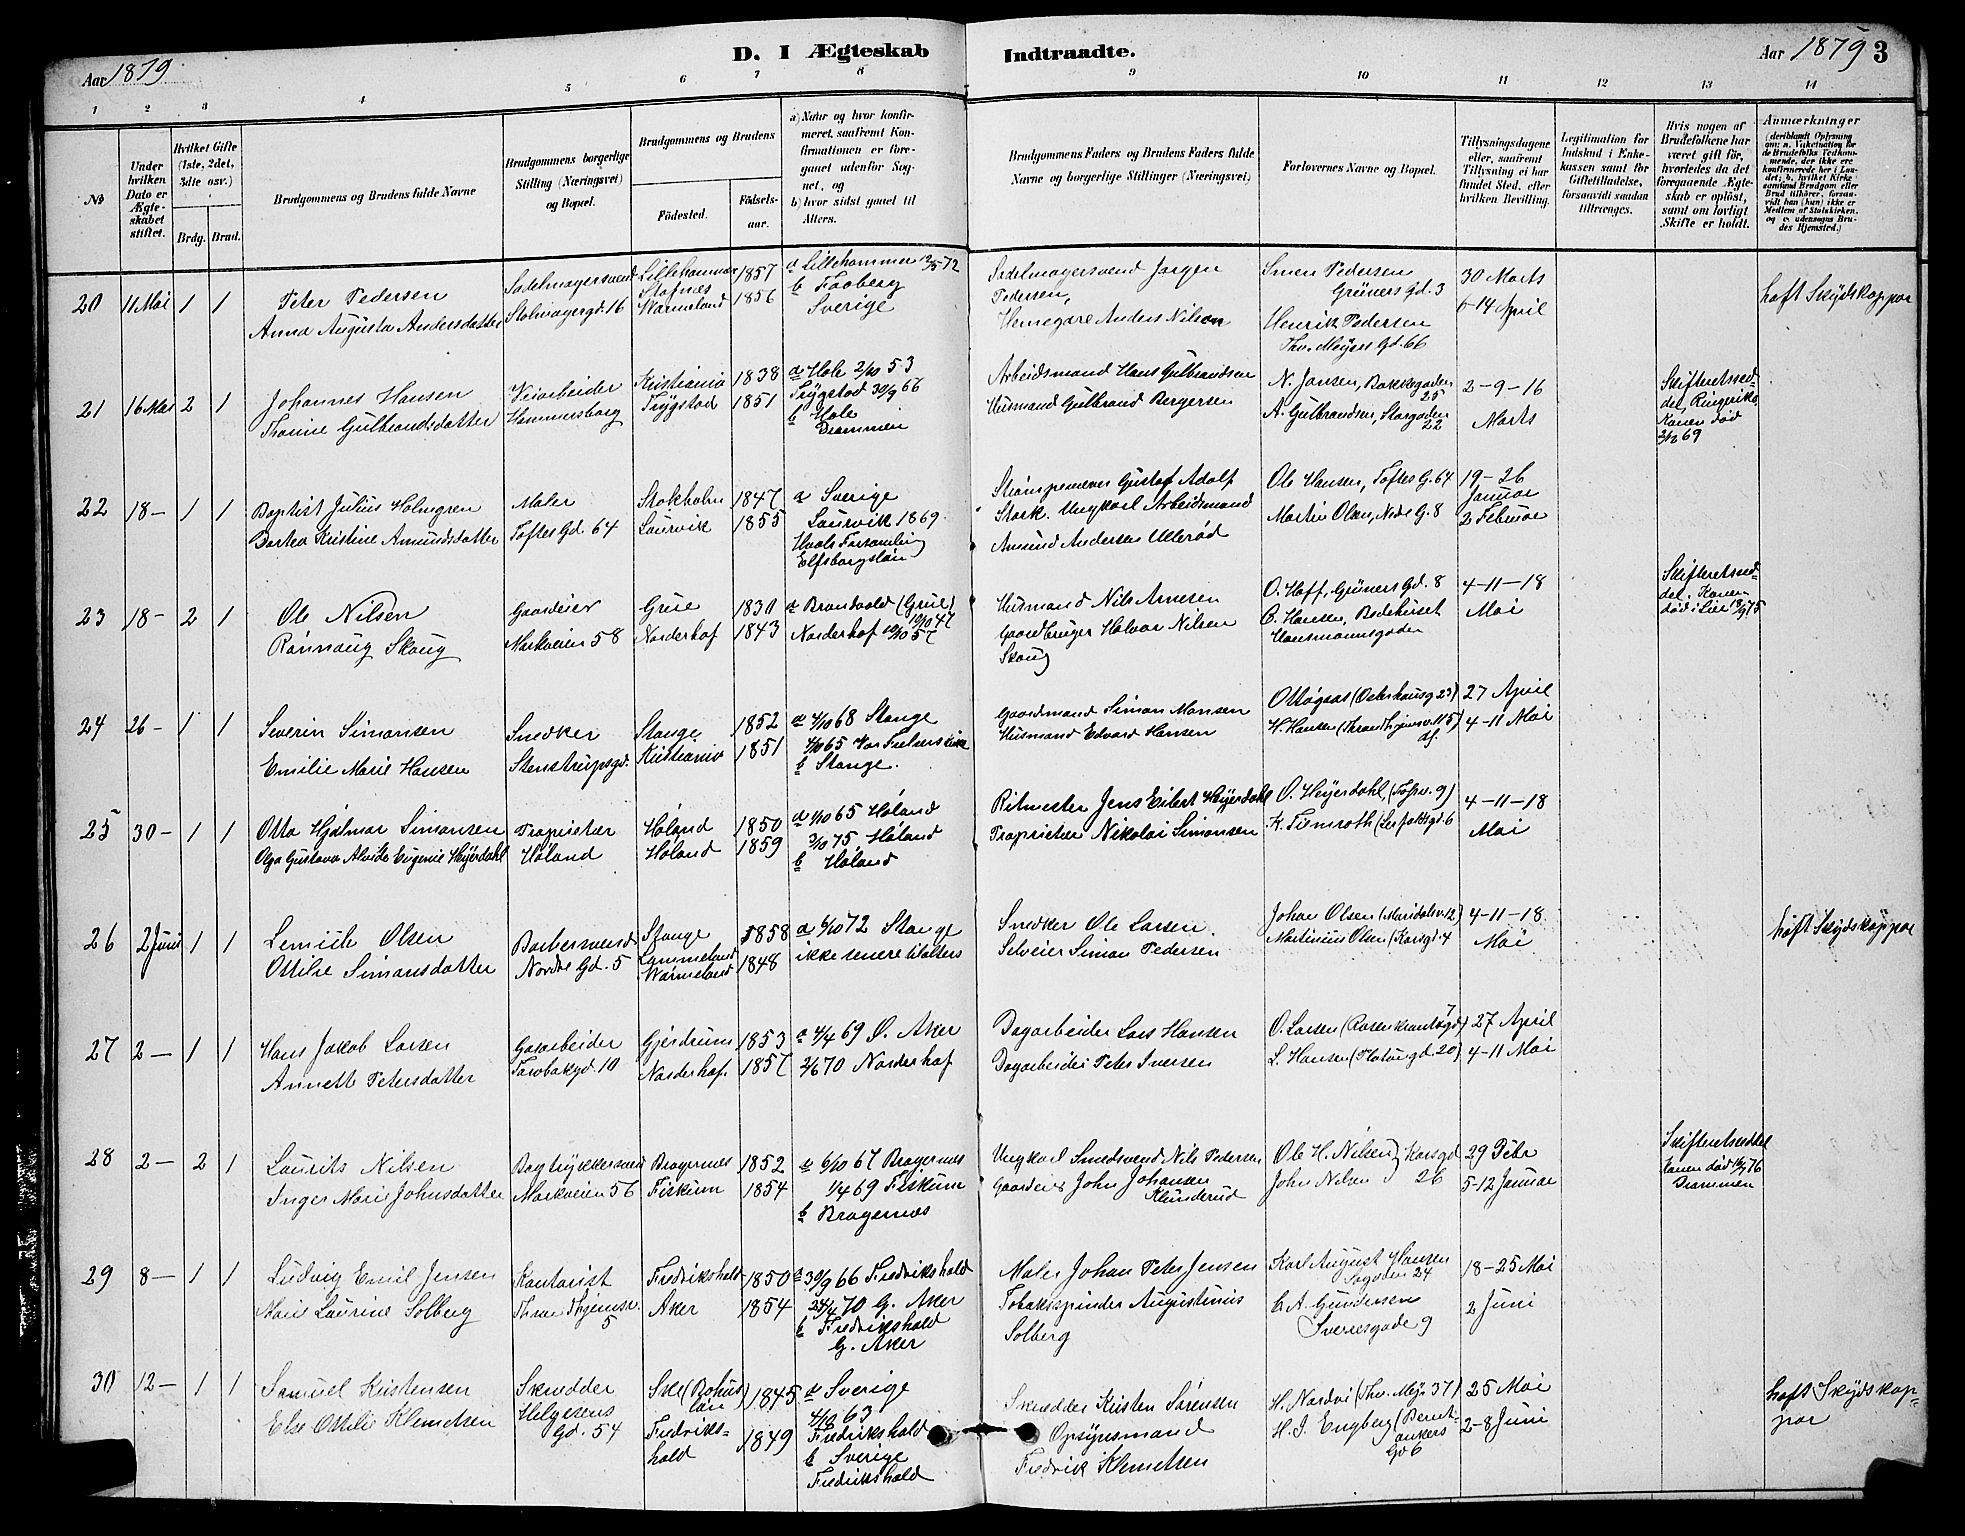 D. I Ægteskab Indtraadte.
Aar 1879.
Aar 1879 3
1 2 3 4 5 6 7 8 9 10 11 12 13 14
No
Under hvilken Dato er Ægteskabet stiftet.
Hvilket Gifte (1ste, 2det, 3dte osv.)
Brdg. Brud.
Brudgommens og Brudens fulde Navne
Brudgommens borgerlige Stilling (Næringsvei) og Bopæl.
Brudgommens og Brudens
Fødested.
Fødsels-aar.
a) Naar og hvor konfirmeret, saafremt Konfirmationen er foregaaet udenfor Sognet, og
b) hvor sidst gaaet til Alters.
Brudgommens Faders og Brudens Faders fulde Navne og borgerlige Stillinger (Næringsvei)
Forlovernes Navne og Bopæl.
Tillysningsdagene eller, saafremt Tillysning ei har fundet Sted, efter hvilken Bevilling.
Legitimation for Indskud i Enkekassen samt for Giftetilladelse, forsaavidt saadan tiltrænges.
Hvis nogen af Brudefolkene har været gift før, hvorledes da det foregaaende Ægteskab er opløst, samt om lovligt Skifte er holdt.
Anmærkninger
20 11 Mai 1 1
Peter Pedersen
Anna Augusta Andersdatter
Sadelmagersvend
Stolmagergd. 16
Lillehammer 1857
Stafnæs
Wärmeland 1856
a Lillehammer 12/5 72
b Faaberg
Sverige
Sadelmagersvend Jørgen
Pedersen,
Hemegare Anders Nilsen
Simen Pedersen
Grüners Gd. 3
Henrik Pedersen
Thv. Meyers Gd. 66
30 Marts
6-14 April
haft Skydskopper
21 16 Mai 2 1
Johannes Hansen
Thorine Gulbrandsdatter
Veiarbeider
Hammersborg
Kristiania 1838
Trygstad 1851
a Hole 2/10 53
Trygstad 30/9 66
b Hole
Drammen
Arbeidsmand Hans Gulbrandsen
Husmand Gulbrand Bergersen
N. Jansen, Bakkegaden 25
A. Gulbrandsen, Storgaden 22
2-9-16
Marts
Skifteretssed-
del, Ringerike,
Konen død
69
22 18- 1 1
Baptist Julius Holmgren
Dortea Kristine Amundsdatter
Maler
Toftes Gd. 64
Stokholm 1847
Laurvik 1855
a Sverige
Laurvik 1869.
Elfsborgslän
Gustaf Adolf
Stark. Ungkarl Arbeidsmand
Amund Andersen Ullerød
Ole Hansen, Toftes G. 64
Martin Olsen, Nedre G. 8
19-26
Januar
2 Februar
23 18- 2 1
Ole Nilsen
Rønnaug Skaug
Gaardeier
Markveien 58
Grue 1830
Norderhof 1843
a Brandvold (Grue)
10/10 47
Norderhof 57
Husmand Nils Arnesen
Gaardbruger Halvor Nilsen
Skaug
O. Hoff, Grüners Gd. 8
C. Hansen, Badehuset
Hausmannsgaden
4-11-18
Mai
Skifteretssed-
del. Konen
død i Lier 75
24 26- 1 1
Severin Simonsen
Emilie Marie Hansen
Snedker
Stenstrupsgd.
Stange 1852
Kristiania 1851
a 4/10 68 Stange
65 Vor Frelsers Kirke
b Stange.
Gaardmand Simon Monsen
Husmand Edvard Hansen
(Osterhausg 23)
H. Hansen (Throndhjemsv. 115)
27 April
4-11 Mai
25 30- 1 1
Otto Hjalmar Simonsen
Olga Gustava Alvida Eugenie Heyerdahl
Proprietær
Høland
Høland 1850
Høland 1859
a 1/10 65 Høland
3/10 75 Høland
b Høland
Ritmester Jens Eilert Heyerdahl
Proprietær Nikolai Simonsen
O. Heyerdahl,
K. Tiemroth
4-11-18
Mai
26 2 Juni 1 1
Olsen
Ottilie Simonsdatter
Barbersvend
Nordre Gd. 5
Stange 1858
Wärmeland 1848
a 6/10 72 Stange
ikke senere til alters
Snedker Ole Larsen.
Selveier Simon Pedersen
Johan Olsen (Maridalsv. 12)
Martinius Olsen (Korsgd. 4
4-11-18.
Mai
haft Skydskopper
27 2- 1 1
Hans Jakob Larsen
Annette Petersdatter
Gasarbeider
Torvbakgd. 10
Gjerdrum 1853
Norderhof. 1857
a 4/4 69 Ø. Aker
2/6 70 Norderhof
Dagarbeider Lars Hansen
Dagarbeider Peter Iversen
O. Larsen (Rosenkrantsgd. 7)
L. Hansen (Platougd. 20)
27 April
4-11 Mai
28 2- 2 1
Laurits Nilsen
Inger Marie Johnsdatter
Bogtrykkersvend
Markveien 56
Bragernes 1852
Fiskum 1854
a 6/10 67 Bragernes
1/4 69 Fiskum
b Bragernæs
Ungkarl Smedsvend Nils Pedersen
Gaardeier John Johansen
Klunderud
Ole H. Nilsen } Korsgd.
John Nilsen 26
29 Febr
5-12 Januar
Skifteretsseddel
Konen død 76
Drammen
29 8- 1 1
Ludvig Emil Jensen
Marie Laurine Solberg
Kontorist
Throndhjemsv.
5
Fredrikshald 1850
Aker 1854
a 30/9 66 Fredrikshald
24/4 70 G. Aker
b Fredrikshald
G. Aker
Maler Johan Peter Jensen
Tobakspinder Augustinus
Solberg
Karl August Hansen
Søgaden 24
C. A. Gundersen
Sverresgade 9
18-25 Mai
2 Juni
30 12- 1 1
Samuel Kristensen
Else Ottilie Klemetsen
Skrædder
Helgesens
Gd. 54
Skee (Bohus
län) 1845
Fredriks-
hald 1849
a Sverige
4/10 63
Fredrikshald
b Sverige
Fredrikshald
Skrædder Kristen Sørensen
Opsynsmand
Fredrik Klemetsen
H. Nordvi (Thv. Meyr. 37)
H. J. Engberg (Bernt
ankers
Gd 6
25 Mai
2-8 Juni
haft Skydskop-
per